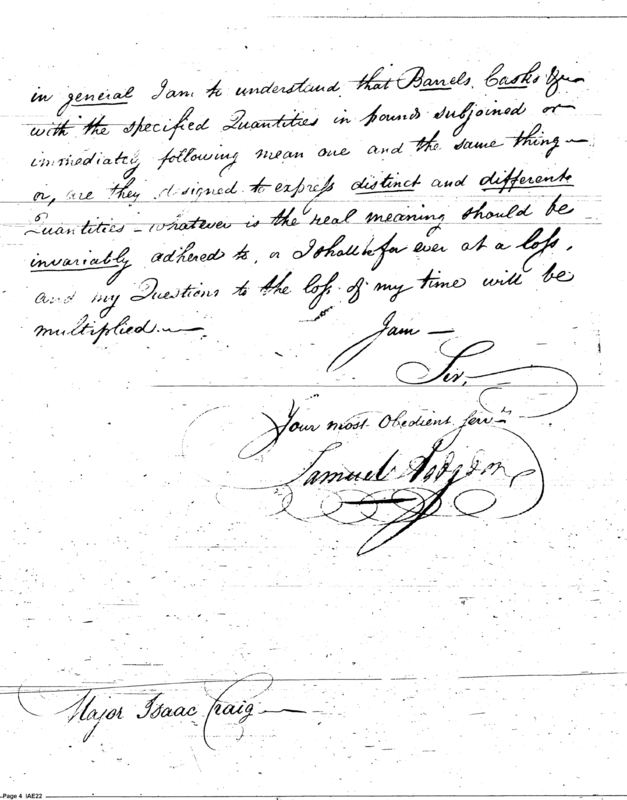 in general I am to understand that Barrels, Casks &ca
with the specified Quantities in pounds subjoined or
immediately following mean one and the same thing —
or, are they designed to express distinct and different
Quantities — whatever is the real meaning should be
invariably adhered to, or I shall be for ever at a loss,
and my Questions to the loss of my time will be
multiplied. —
I am —
Sir,
Your most Obedient Servt
Samuel Hodgdon
Major Isaac Craig —
Page 4 IAE22